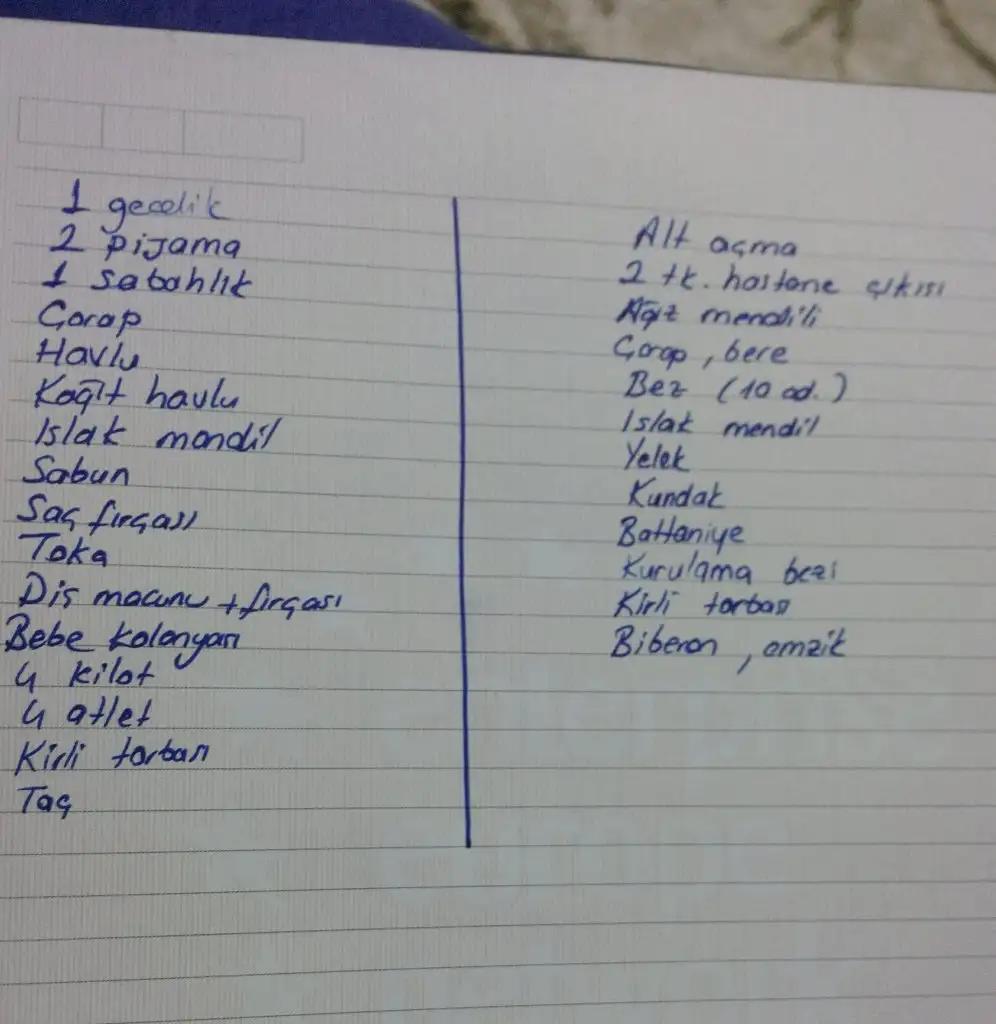 1 gecelik
2 pijama
1 sabahlık
Çorap
Havlu
Kağıt havlu
Islak mendil
Sabun
Saç fırçası
Toka
Diş macunu + fırçası
Bebe kolonyası
4 kilot
4 atlet
Kirli torbası
Taç
Alt açma
2 tk. hastane çıkışı
Ağız mendili
Çorap, bere
Bez (10 ad.)
Islak mendil
Yelek
Kundak
Battaniye
Kurulama bezi
Kirli torbası
Biberon, emzik